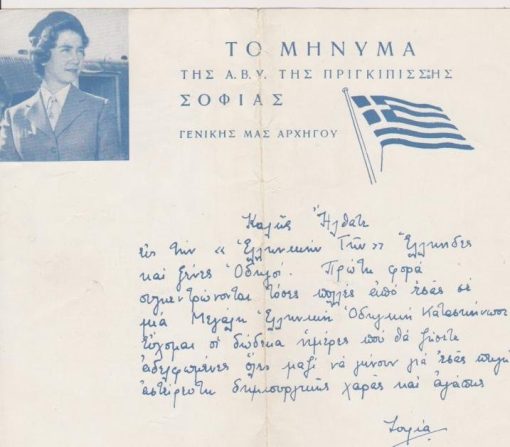 ΤΟ ΜΗΝΥΜΑ
ΤΗΣ Α.Β.Υ. ΤΗΣ ΠΡΙΓΚΙΠΙΣΣΗΣ
ΣΟΦΙΑΣ
ΓΕΝΙΚΗΣ ΜΑΣ ΑΡΧΗΓΟΥ
Καλῶς Ἤλθατε
εἰς τὴν « Ἑλληνικὴν Γῆν » Ἑλληνίδες
καὶ ξένες Ὁδηγοί. Πρώτη φορὰ
συγκεντρώνονται τόσες πολλές ἀπὸ ἐσᾶς σὲ
μιὰ Μεγάλη Ἑλληνικὴ Ὁδηγικὴ
Εὔχομαι οἱ δώδεκα ἡμέρες ποὺ θὰ ζήσετε
ἀδελφωμένες ὅλες μαζὶ νὰ γίνουν γιὰ ἐσᾶς πηγὴ
ἀστείρευτη δημιουργικῆς χαρᾶς καὶ ἀγάπης
Σοφία